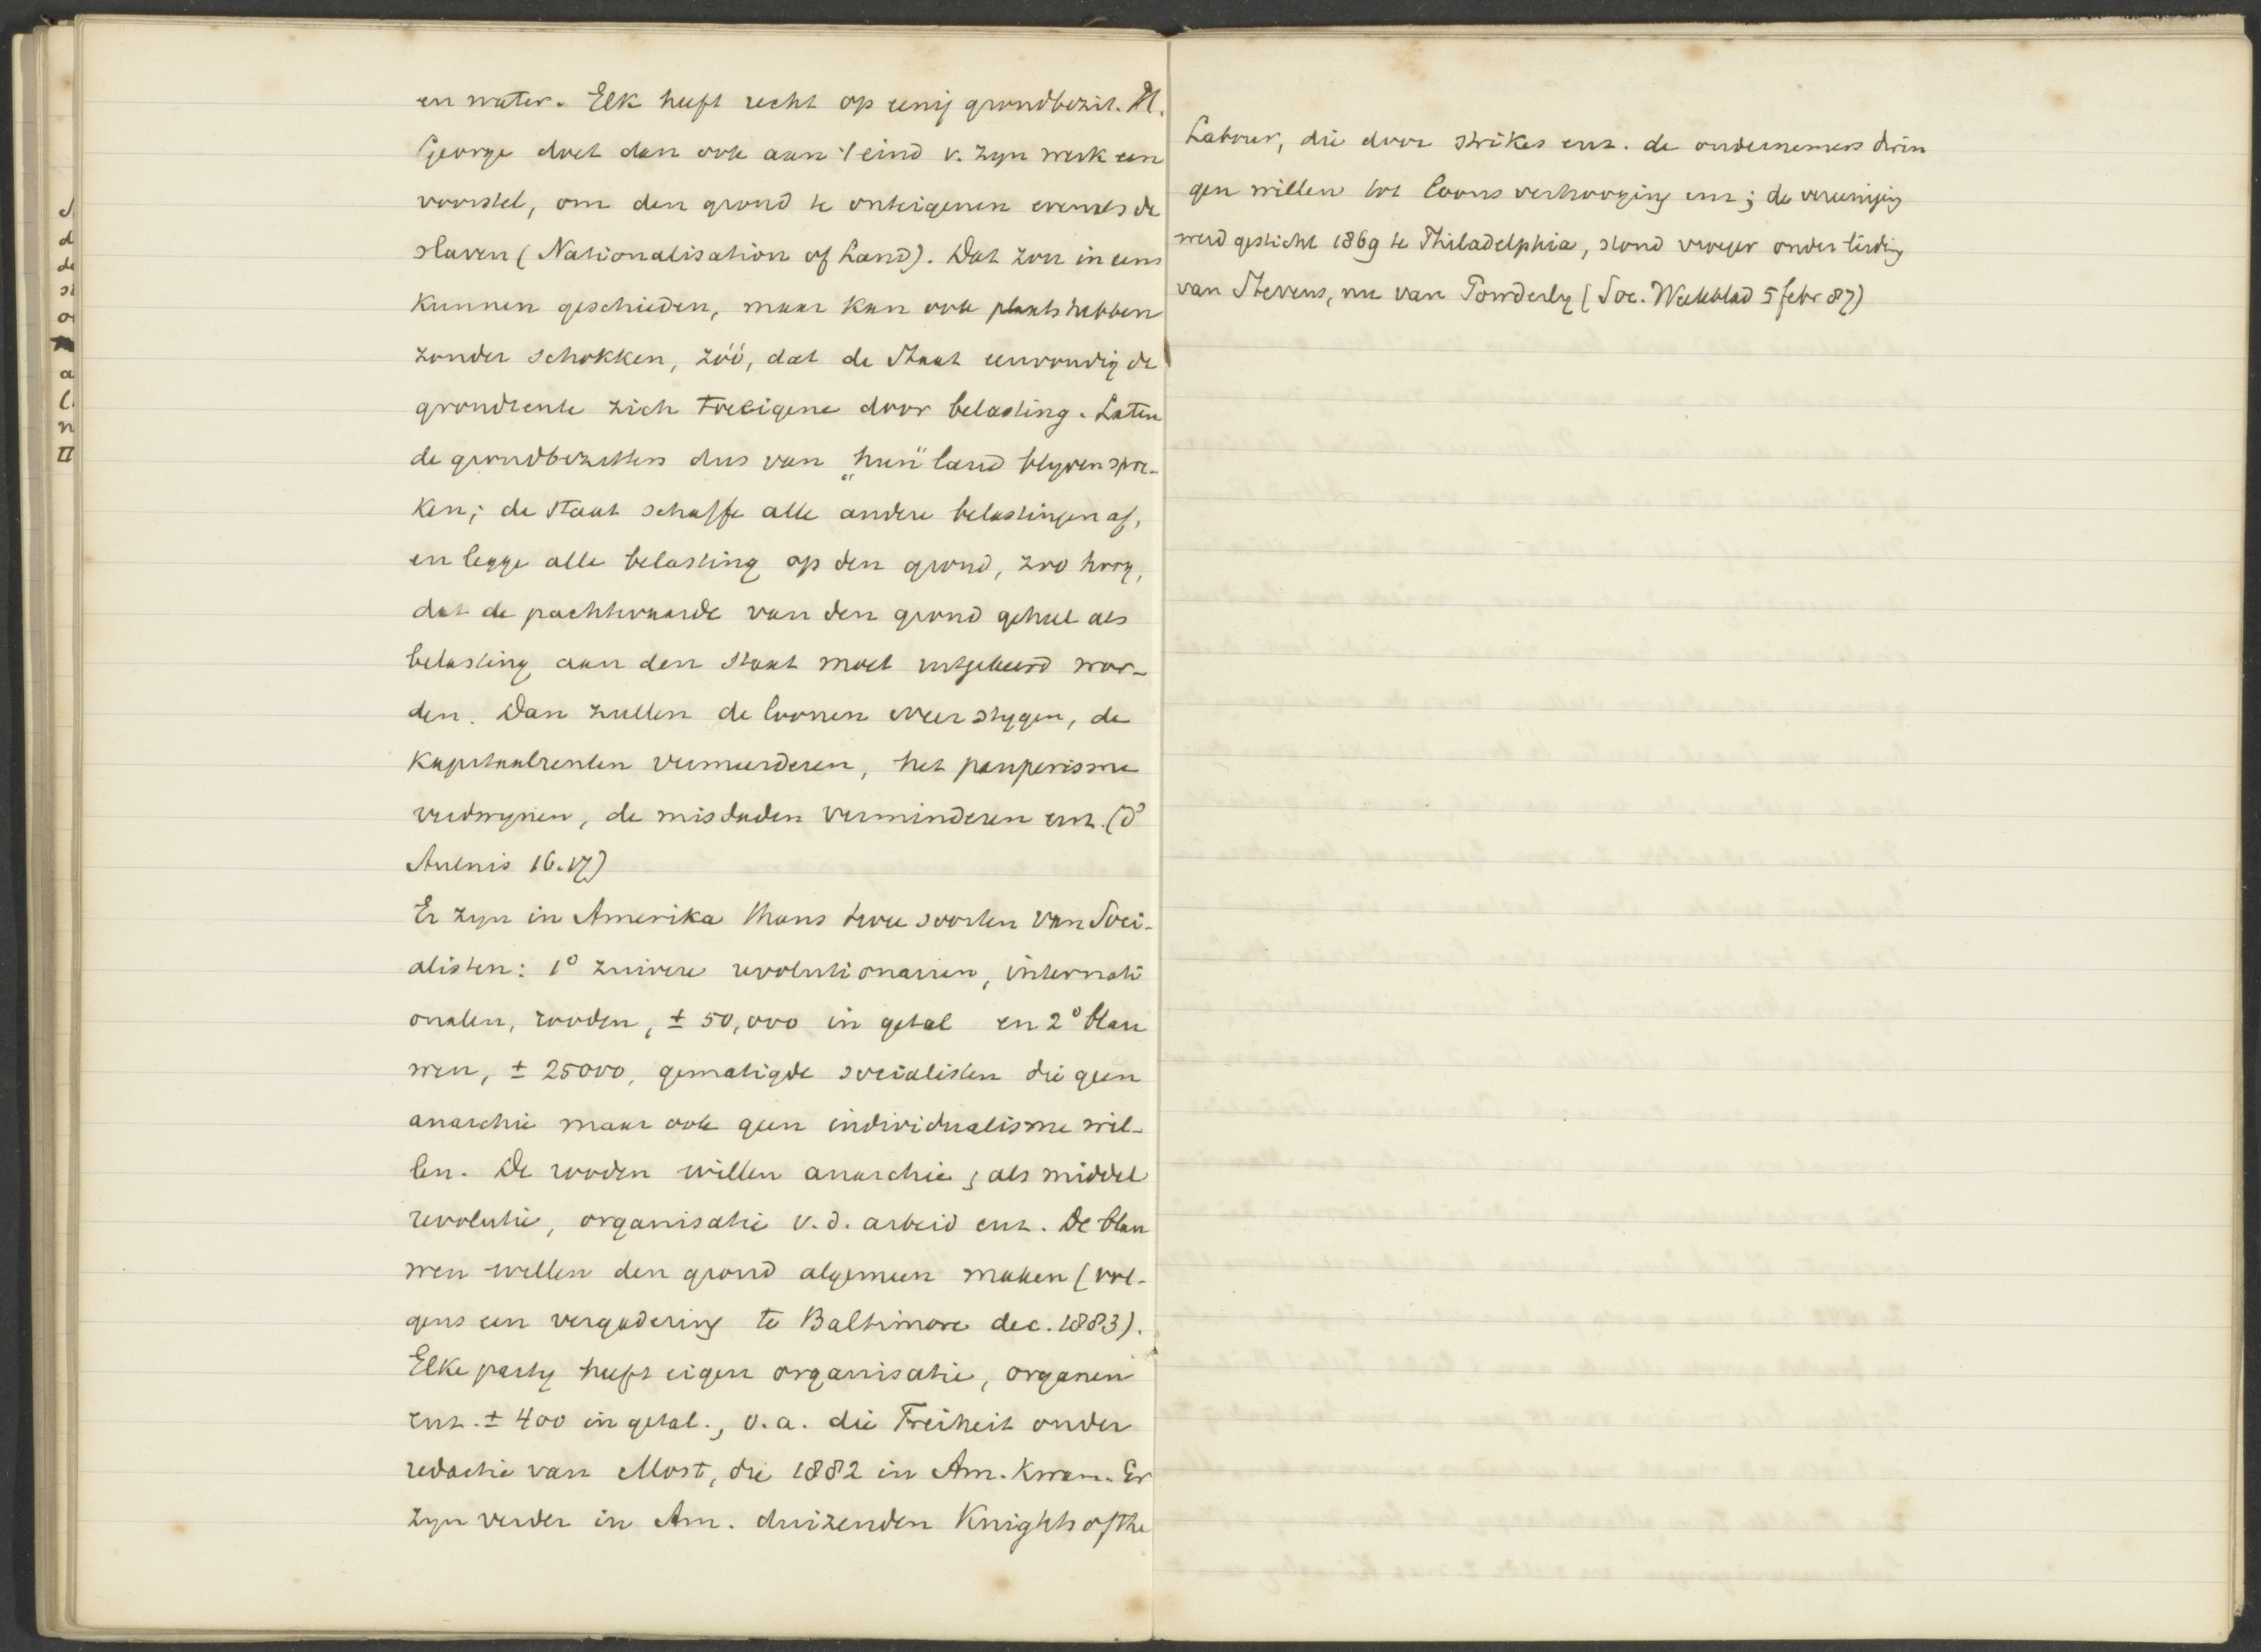 en water. Elk heeft recht op eenig grondbezit. H.
George doet dan ook aan 't eind v. zyn werk een
voorstel, om den grond te onteigenen evenals de
slaven (Nationalisation of Land). Dat zou in eens
kunnen geschieden, maar kan ook plaats hebben
zonder schokken, zóó, dat de Staat eenvoudig de
grondrente zich toeëigene door belasting. Laten
de grondbezitters dus van „hun" land blyven spre-
ken; de staat schaffe alle andere belastingen af,
en legge alle belasting op den grond, zoo hoog,
dat de pachtwaarde van den grond geheel als
belasting aan den staat moet uitgekeerd wor-
den. Dan zullen de loonen weer stygen, de
kapitaalrenten vermeerderen, het pauperisme
verdwynen, de misdaden verminderen enz. (d'
Aulnis 16.17)
Er zyn in Amerika thans twee soorten van Soci-
alisten: 1° zuivere revolutionairen, internati
onalen, rooden, ± 50,000 in getal en 2° blau
wen, ± 25000, gematigde socialisten die geen
anarchie maar ook geen individualisme wil-
len. De rooden willen anarchie; als middel
revolutie, organisatie v.d. arbeid enz. De blau
wen willen den grond algemeen maken (vol-
gens een vergadering te Baltimore dec. 1883).
Elke party heeft eigen organisatie, organen
enz. ± 400 in getal., o.a. die Freiheit onder
redactie van Most, die 1882 in Am. kwam. Er
zyn verder in Am. duizenden Knights of the
Labour, die door strikes enz. de ondernemers drin
gen willen tot loonsverhooging enz; de vereeniging
werd gesticht 1869 te Philadelphia, stond vroeger onder leiding
van Stevens, nu van Powderly (Soc. Weekblad 5 febr 87)